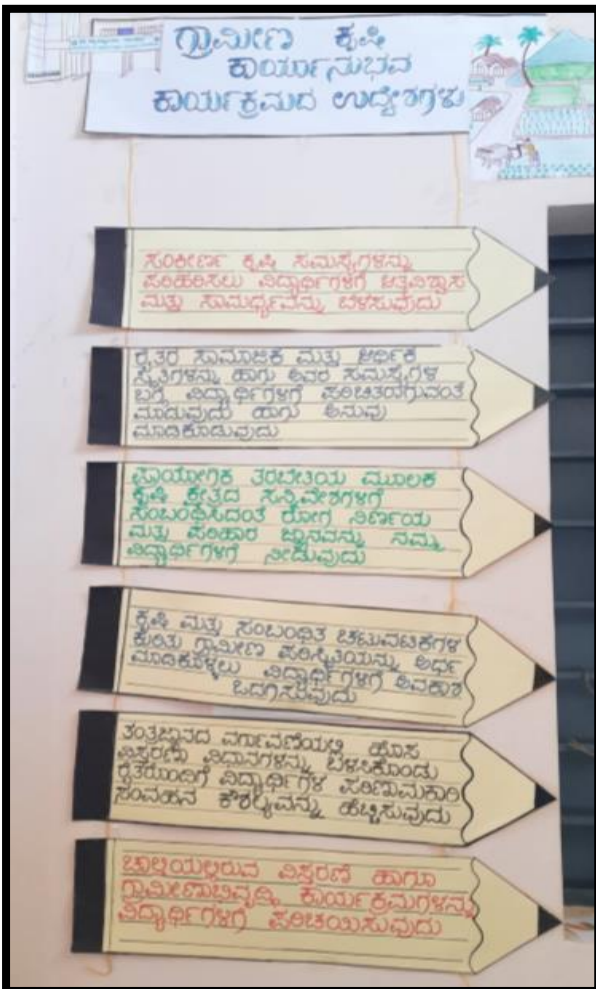 ಗ್ರಾಮೀಣ ಕೃಷಿ
ಕಾರ್ಯಾನುಭವ
ಕಾರ್ಯಕ್ರಮದ ಉದ್ದೇಶಗಳು
ಸಂಕೀರ್ಣ ಕೃಷಿ ಸಮಸ್ಯೆಗಳನ್ನು
ಪರಿಹರಿಸಲು ವಿದ್ಯಾರ್ಥಿಗಳಿಗೆ ಆತ್ಮವಿಶ್ವಾಸ
ಮತ್ತು ಸಾಮರ್ಥ್ಯವನ್ನು ಬೆಳೆಸುವುದು
ರೈತರ ಸಾಮಾಜಿಕ ಮತ್ತು ಆರ್ಥಿಕ
ಸ್ಥಿತಿಗಳನ್ನು ಹಾಗು ಅವರ ಸಮಸ್ಯೆಗಳ
ಬಗ್ಗೆ ವಿದ್ಯಾರ್ಥಿಗಳಿಗೆ ಪರಿಚಿತಯಾಗುವಂತೆ
ಮಾಡುವುದು ಹಾಗು ಅನುವು
ಮಾಡಿಕೊಡುವುದು
ಪ್ರಾಯೋಗಿಕ ತರಬೇತಿಯ ಮೂಲಕ
ಕೃಷಿ ಕ್ಷೇತ್ರದ ಸನ್ನಿವೇಶಗಳಿಗೆ
ಸಂಬಂಧಿಸಿದಂತೆ ರೋಗ ನಿರ್ಣಯ
ಮತ್ತು ಪರಿಹಾರ ಜ್ಞಾನವನ್ನು ನಮ್ಮ
ವಿದ್ಯಾರ್ಥಿಗಳಿಗೆ ನೀಡುವುದು
ಕೃಷಿ ಮತ್ತು ಸಂಬಂಧಿತ ಚಟುವಟಿಕೆಗಳ
ಕುರಿತು ಗ್ರಾಮೀಣ ಪರಿಸ್ಥಿತಿಯನ್ನು ಅರ್ಥ
ಮಾಡಿಕೊಳ್ಳಲು ವಿದ್ಯಾರ್ಥಿಗಳಿಗೆ ಅವಕಾಶ
ಒದಗಿಸುವುದು
ತಂತ್ರಜ್ಞಾನದ ವರ್ಗಾವಣೆಯಲ್ಲಿ ಹೊಸ
ವಿಸ್ತರಣಾ ವಿಧಾನಗಳನ್ನು ಬಳಸಿಕೊಂಡು
ರೈತರೊಂದಿಗೆ ವಿದ್ಯಾರ್ಥಿಗಳ ಪರಿಣಾಮಕಾರಿ
ಸಂವಹನ ಕೌಶಲ್ಯವನ್ನು ಹೆಚ್ಚಿಸುವುದು
ಚಾಲ್ತಿಯಲ್ಲಿರುವ ವಿಸ್ತರಣೆ ಹಾಗೂ
ಗ್ರಾಮೀಣಾಭಿವೃದ್ಧಿ ಕಾರ್ಯಕ್ರಮಗಳನ್ನು
ವಿದ್ಯಾರ್ಥಿಗಳಿಗೆ ಪರಿಚಯಿಸುವುದು